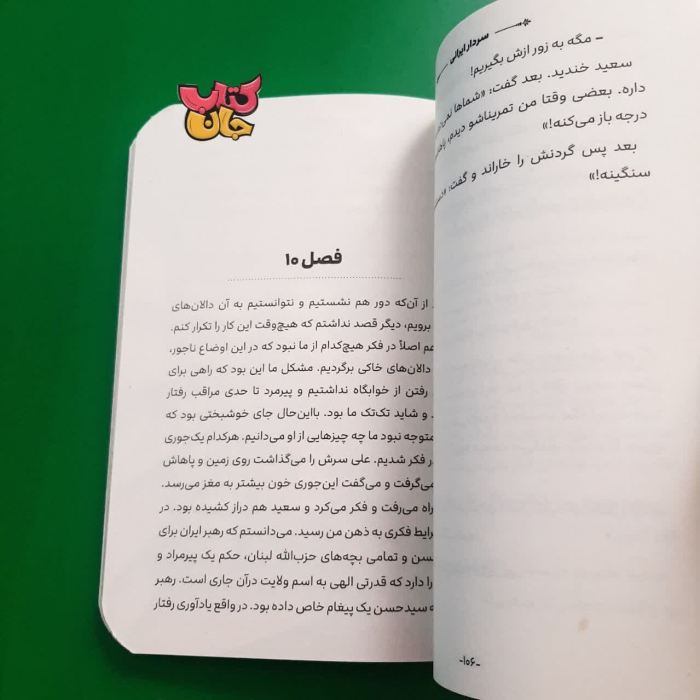 سردار ایرانی
- مگه به زور ازش بگیریم!
سعید خندید. بعد گفت: «شماها
داره. بعضی وقتا من تمریناشو دیدم،
درجه باز می‌کنه!»
بعد پس گردنش را خاراند و گفت:
سنگینه!»
-۱۰۶-
کتاب جان
فصل ۱۰
از آن‌که دور هم نشستیم و نتوانستیم به آن دالان‌های
برویم، دیگر قصد نداشتم که هیچ‌وقت این کار را تکرار کنم.
اصلاً در فکر هیچ‌کدام از ما نبود که در این اوضاع ناجور،
دالان‌های خاکی برگردیم. مشکل ما این بود که راهی برای
رفتن از خوابگاه نداشتیم و پیرمرد تا حدی مراقب رفتار
و شاید تک‌تک ما بود. بااین‌حال جای خوشبختی بود که
متوجه نبود ما چه چیزهایی از او می‌دانیم. هرکدام یک‌جوری
فکر شدیم. علی سرش را می‌گذاشت روی زمین و پاهاش
می‌گرفت و می‌گفت این‌جوری خون بیشتر به مغز می‌رسد.
راه می‌رفت و فکر می‌کرد و سعید هم دراز کشیده بود. در
فکری به ذهن من رسید. می‌دانستم که رهبر ایران برای
و تمامی بچه‌های حزب‌الله لبنان، حکم یک پیرمراد و
را دارد که قدرتی الهی به اسم ولایت درآن جاری است. رهبر
سیدحسن یک پیغام خاص داده بود. در واقع یادآوری رفتار